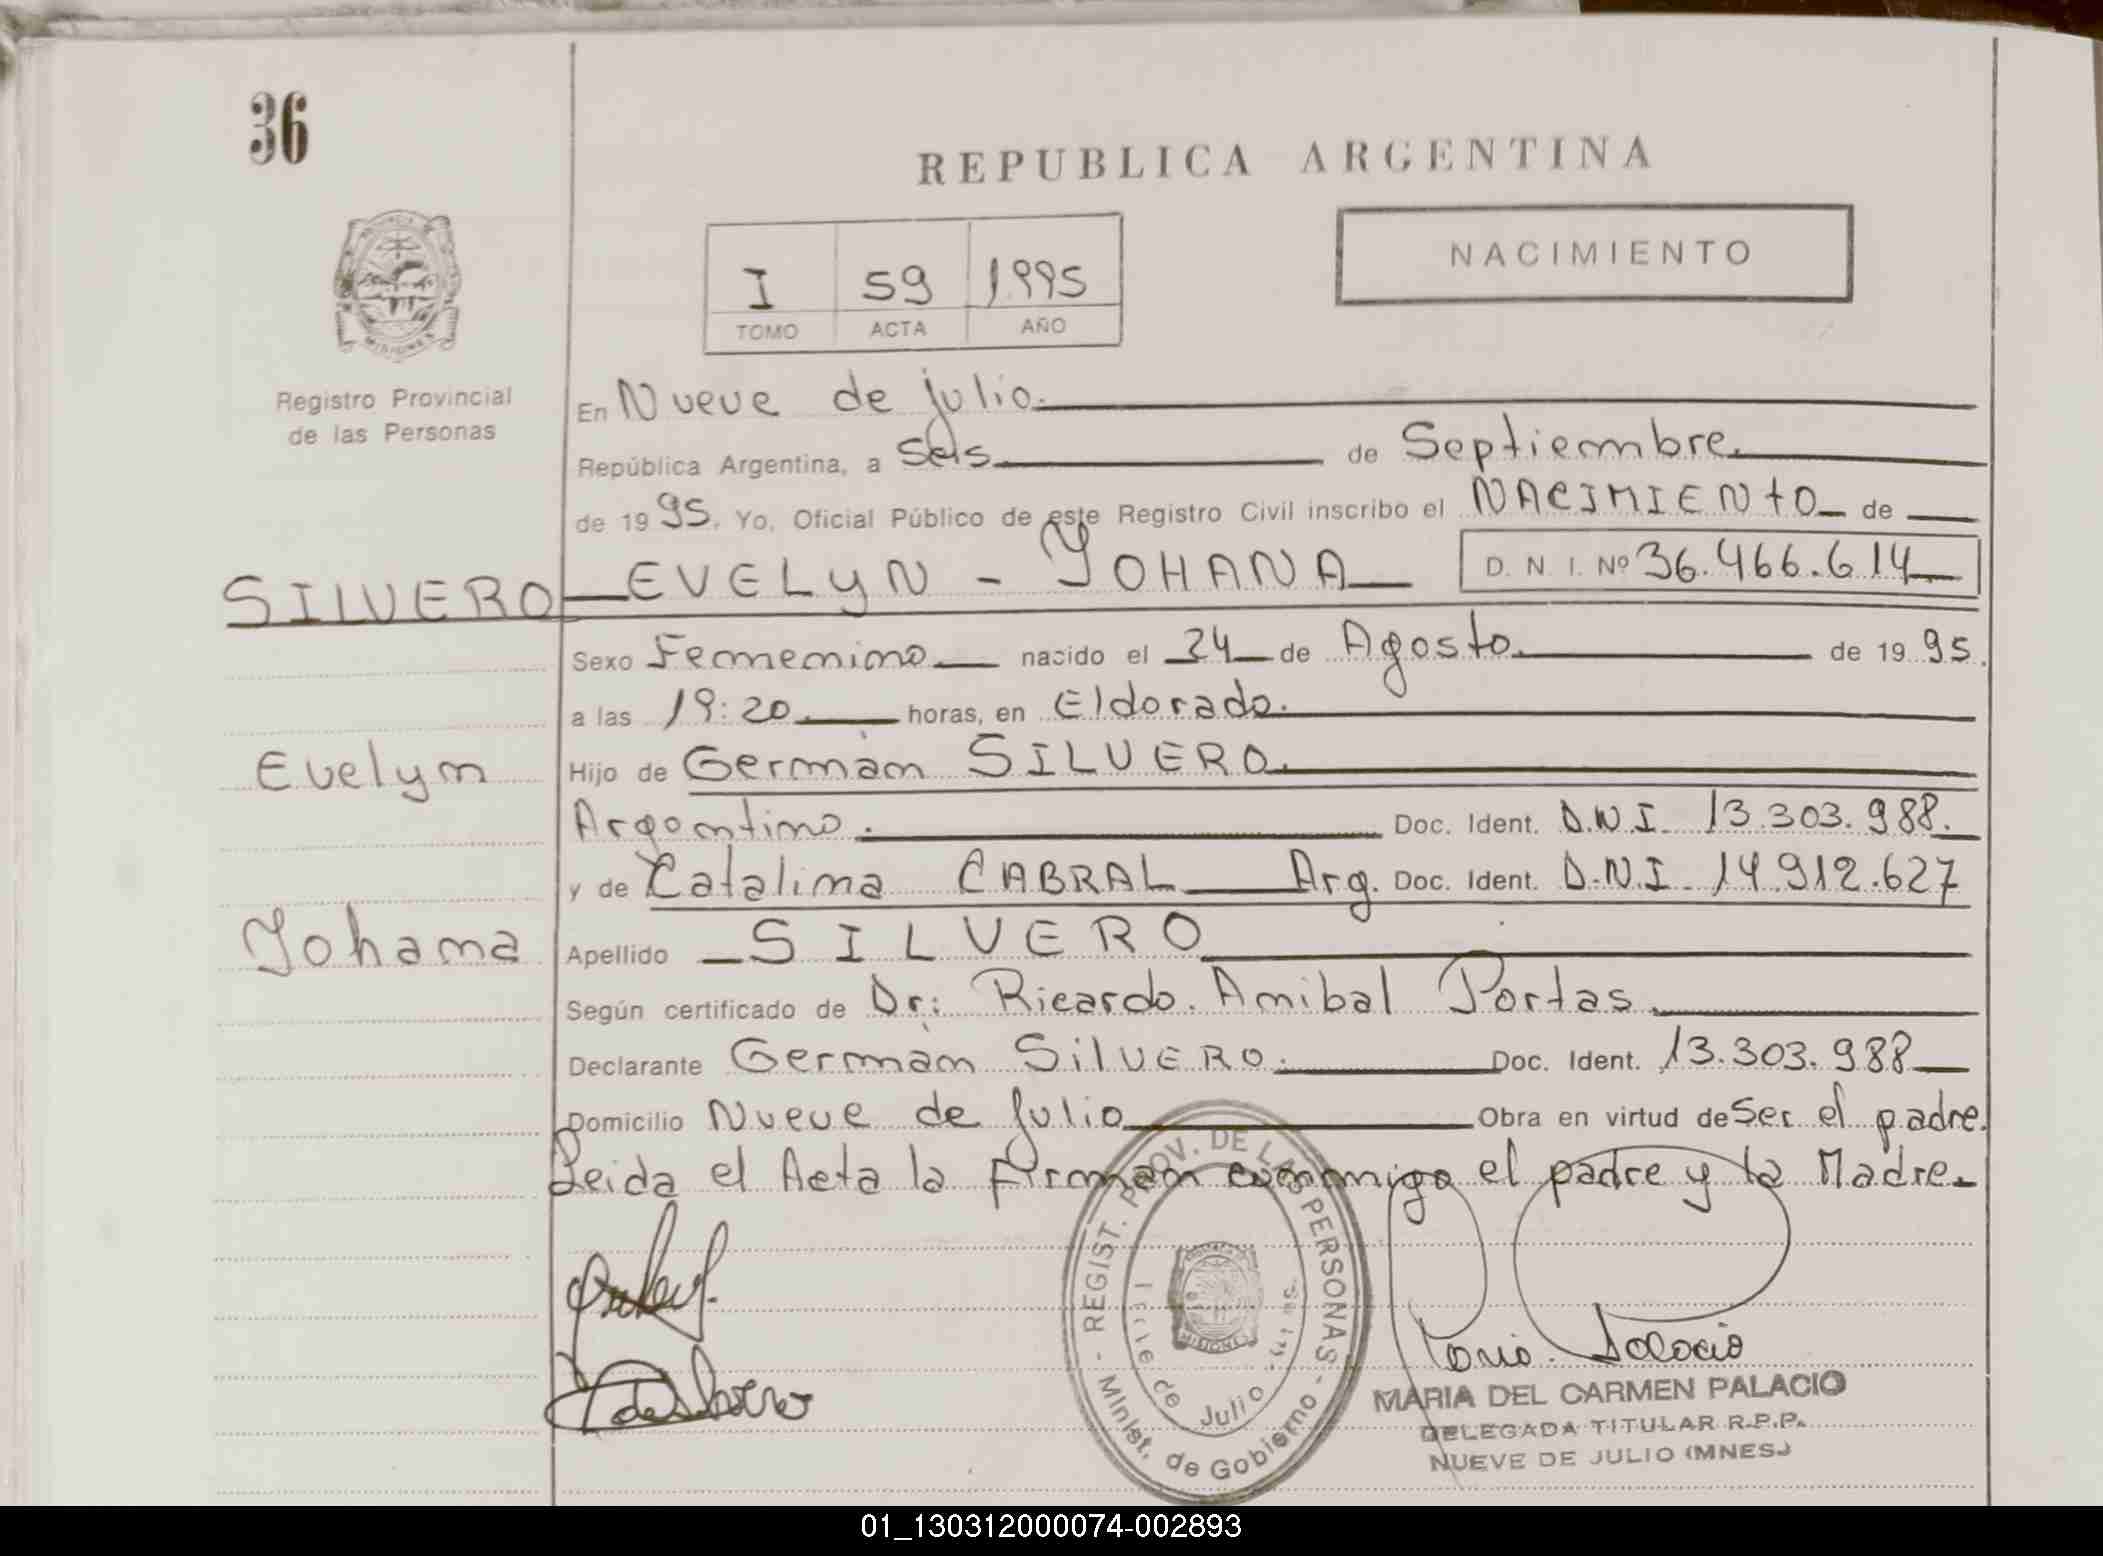 36
REPUBLICA ARGENTINA
NACIMIENTO
I 59 1995
TOMO ACTA AÑO
MISIONES
Registro Provincial
de las Personas
En Nueve de julio.
República Argentina, a Seis de Septiembre.
de 1995, Yo, Oficial Público de este Registro Civil inscribo el NACIMIENTO de
SILVERO EVELYN - YOHANA D. N. I. Nº 36.466.614
Sexo Femenino nacido el 24 de Agosto. de 1995.
a las 19:20 horas, en Eldorado.
Evelyn Hijo de Germán SILVERO.
Argentino. Doc. Ident. D.N.I. 13.303.988.
y de Catalina CABRAL Arg. Doc. Ident. D.N.I. 14.912.627
Yohana Apellido SILVERO
Según certificado de Dr: Ricardo. Anibal Portas.
Declarante Germán SilVERO. Doc. Ident. 13.303.988
Domicilio Nueve de Julio Obra en virtud de Ser el padre.
Leida el Acta la Firman conmigo el padre y la Madre.
REGIST. PROV. DE LAS PERSONAS
MISIONES
de Julio
Minist. de Gobierno
MARIA DEL CARMEN PALACIO
DELEGADA TITULAR R.P.P.
NUEVE DE JULIO (MNES.)
01_130312000074-002893